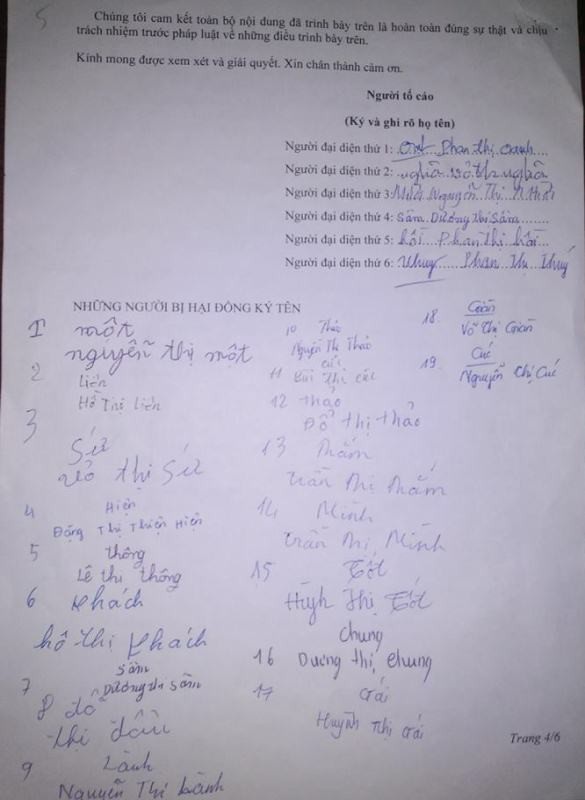 Chúng tôi cam kết toàn bộ nội dung đã trình bày trên là hoàn toàn đúng sự thật và chịu
trách nhiệm trước pháp luật về những điều trình bày trên.
Kính mong được xem xét và giải quyết. Xin chân thành cảm ơn.
Người tố cáo
(Ký và ghi rõ họ tên)
Người đại diện thứ 1: Oanh Phan thị Oanh
Người đại diện thứ 2: nghĩa võ thị nghĩa
Người đại diện thứ 3: Nguyễn Thị
Người đại diện thứ 4: Sâm Dương thị Sâm
Người đại diện thứ 5: hồi Phan thị hồi
Người đại diện thứ 6: Thuý Phan Thị Thuý
NHỮNG NGƯỜI BỊ HẠI ĐỒNG KÝ TÊN
1 một
nguyễn thị một
2 Liên
Hồ Thị Liên
3
Sứ
võ thị Sứ
4 Hiện
Đặng Thị Thiện Hiện
5 thông
Lê thi thông
6 Khách
hồ thị Khách
7 sâm
Dương thi sâm
8 đỗ
thị đậu
9 Lành
Nguyễn Thi Lành
10 Thảo
Nguyễn Thi Thảo
11 cúc
Bùi Thi cúc
12 thảo
Đỗ thị thảo
13 thắm
trần thị thắm
14 Minh
trần thị Minh
15 Tốt
Huỳnh Thị Tốt
16 chung
Dương thị chung
17 Gái
Huỳnh Thị Gái
18. Giàn
Võ Thị Giàn
19. Cúc
Nguyễn Thị Cúc
Trang 4/6